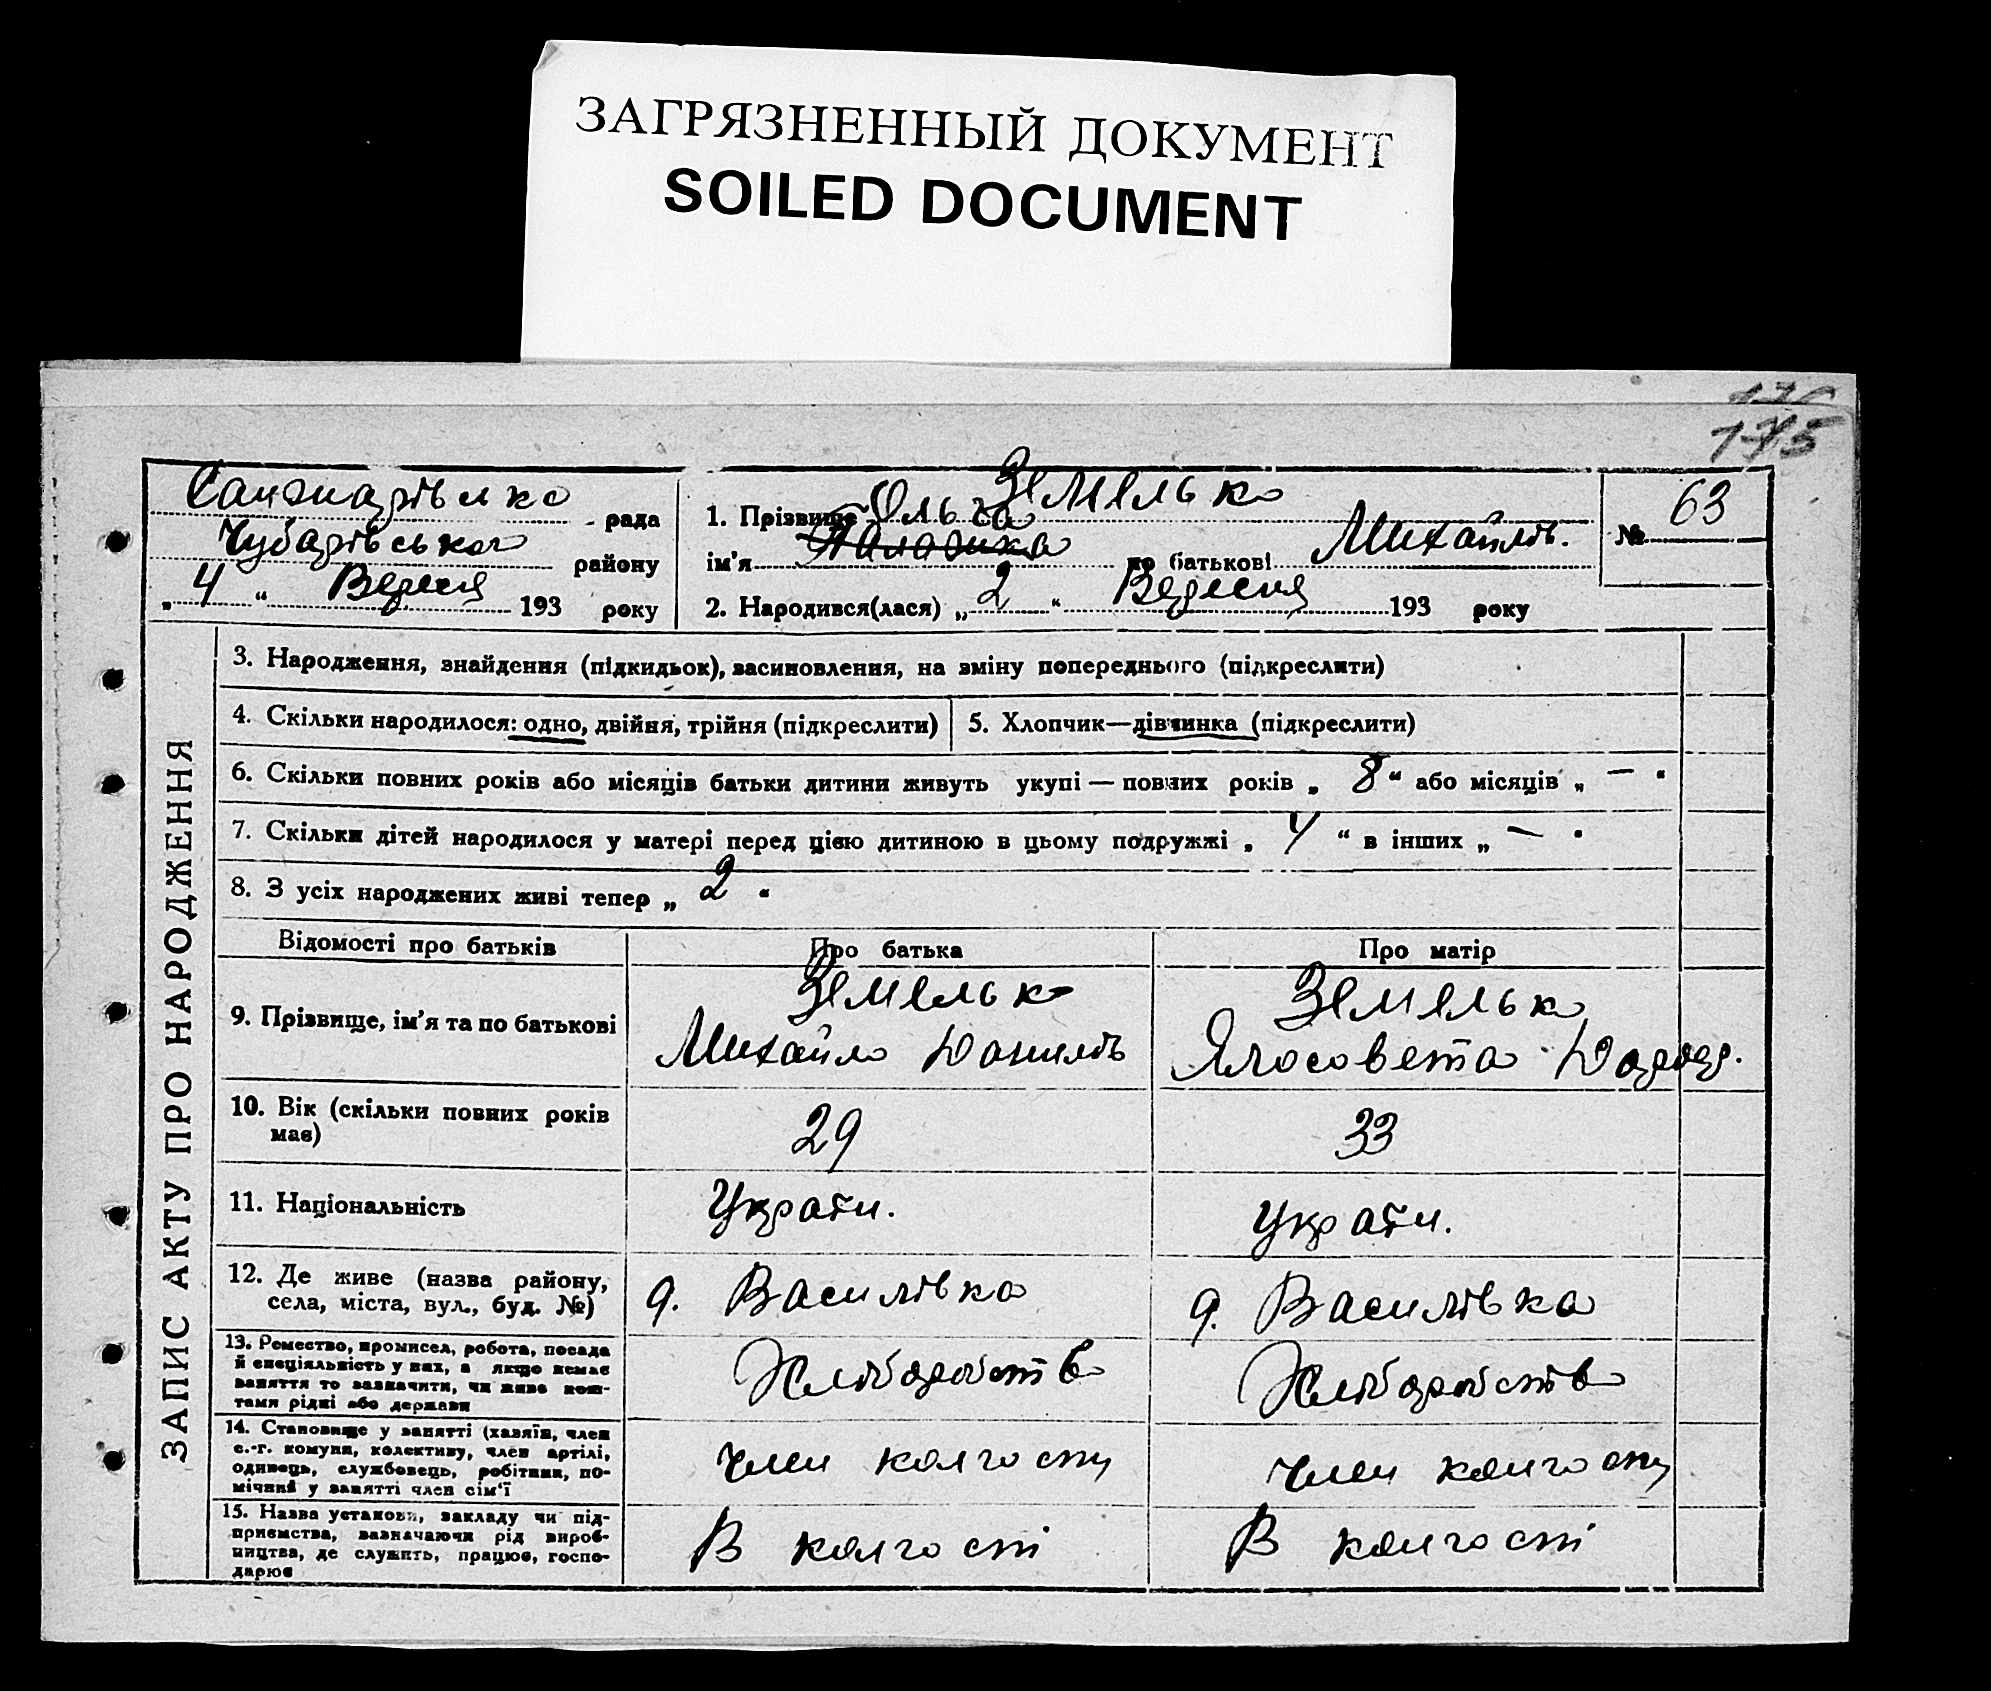 ЗАГРЯЗНЕННЫЙ ДОКУМЕНТ
SOILED DOCUMENT
175
рада
Чубарівського району
„ 4 “ Вересня 193 року
1. Прізвище Земелько
Ольга
ім'я по батькові Михайлів.
2. Народився(лася) „ 2 “ Вересня 193 року
№ 63
ЗАПИС АКТУ ПРО НАРОДЖЕННЯ
3. Народження, знайдення (підкидьок), засиновлення, на зміну попереднього (підкреслити)
4. Скільки народилося: одно, двійня, трійня (підкреслити)
5. Хлопчик—дівчинка (підкреслити)
6. Скільки повних років або місяців батьки дитини живуть укупі — повних років „ 8 “ або місяців „ — “
7. Скільки дітей народилося у матері перед цією дитиною в цьому подружжі „ 4 “ в інших „ — “
8. З усіх народжених живі тепер „ 2 “
Відомості про батьків
Про батька
Про матір
9. Прізвище, ім'я та по батькові
Земелько
Михайло Данилів
Земелько
Ялосовета
10. Вік (скільки повних років має)
29
33
11. Національність
Україн.
Україн.
12. Де живе (назва району,
села, міста, вул., буд. №)
д. Василівка
д. Василівка
13. Ремество, промисел, робота, посада
й специяльність у них, а якщо немає
заняття то зазначити, чи живе кош-
тами рідні або держави
Хліборобств
Хліборобств
14. Становище у занятті (хазяїн, член
с.-г. комуни, колективу, член артілі,
одинець, службовець, робітник, по-
мічний у занятті член сім'ї
член колгоспу
член колгоспу
15. Назва установи, закладу чи під-
приємства, зазначаючи рід вироб-
ництва, де служить, працює, госпо-
дарює
В колгоспі
В колгоспі